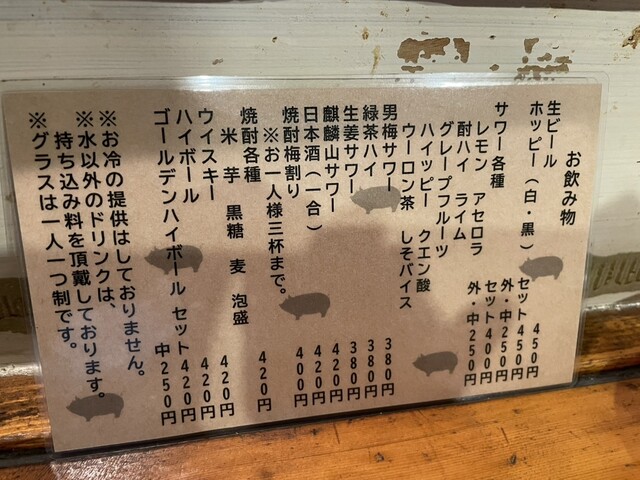 お飲み物
生ビール 450円
ホッピー（白・黒） セット450円
外・中250円
サワー各種 セット400円
外・中250円
レモン アセロラ
酎ハイ ライム
グレープフルーツ
ハイッピー クエン酸
ウーロン茶 しそバイス
男梅サワー 380円
緑茶ハイ 380円
生姜サワー 380円
麒麟山サワー 420円
日本酒（一合） 420円
焼酎梅割り 400円
※お一人様三杯まで。
焼酎各種 420円
米 芋 黒糖 麦 泡盛
ウイスキー 420円
ハイボール 420円
ゴールデンハイボール セット420円
中250円
※お冷の提供はしておりません。
※水以外のドリンクは、
持ち込み料を頂戴しております。
※グラスは一人一つ制です。